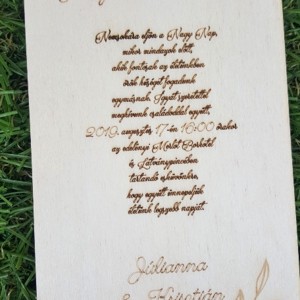 Nemsokára eljön a Nagy Nap,
mikor mindazok előtt,
akik fontosak az életünkben
örök hűséget fogadunk
egymásnak. Együtt szeretettel
meghívunk családoddal együtt,
2019. augusztus 17-én 16:00 órakor
az edelényi Merlot Borhotel
és Látványpincében
tartandó eskövőnkre,
hogy együtt ünnepeljük
életünk legszebb napját.
Julianna
Krisztián